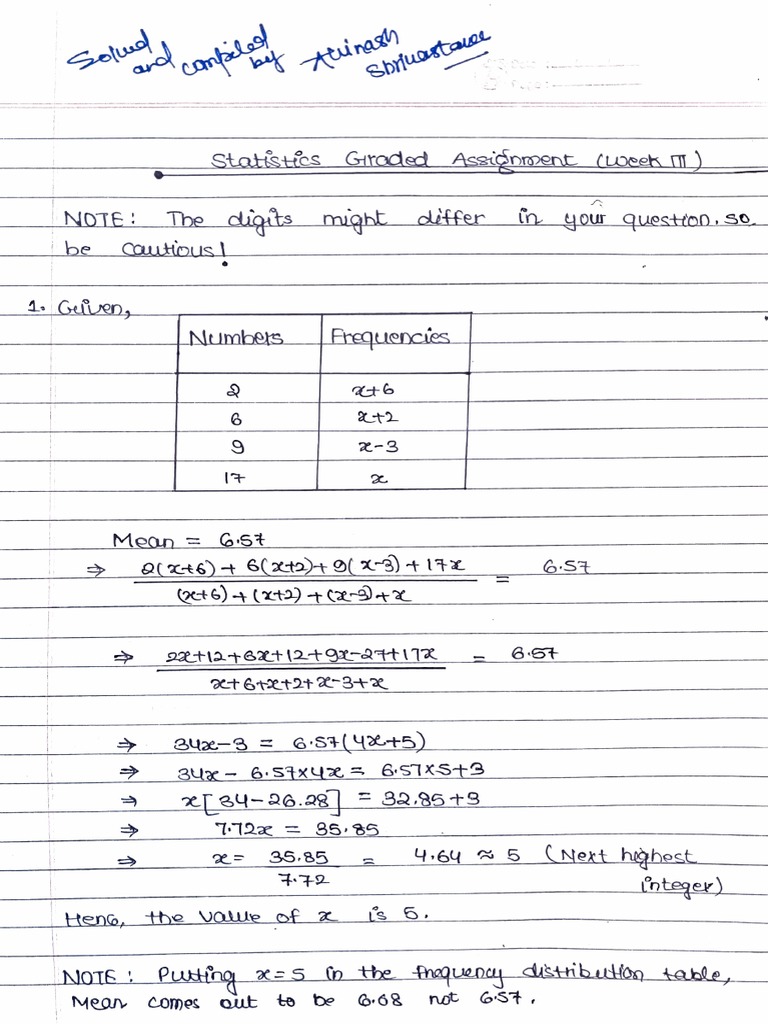 Solved and compiled by Avinash Shrivastava
Statistics Graded Assignment (Week III)
NOTE: The digits might differ in your question, so
be cautious!
1. Given,
Numbers Frequencies
2 x+6
6 x+2
9 x-3
17 x
Mean = 6.57
⇒ 2(x+6) + 6(x+2) + 9(x-3) + 17x / (x+6) + (x+2) + (x-3) + x = 6.57
⇒ 2x+12+6x+12+9x-27+17x / x+6+x+2+x-3+x = 6.57
⇒ 34x-3 = 6.57(4x+5)
⇒ 34x - 6.57×4x = 6.57×5+3
⇒ x[34-26.28] = 32.85+3
⇒ 7.72x = 35.85
⇒ x = 35.85 / 7.72 = 4.64 ≈ 5 (Next highest
integer)
Henc, the value of x is 5.
NOTE: Putting x=5 in the frequency distribution table,
Mean comes out to be 6.68 not 6.57.